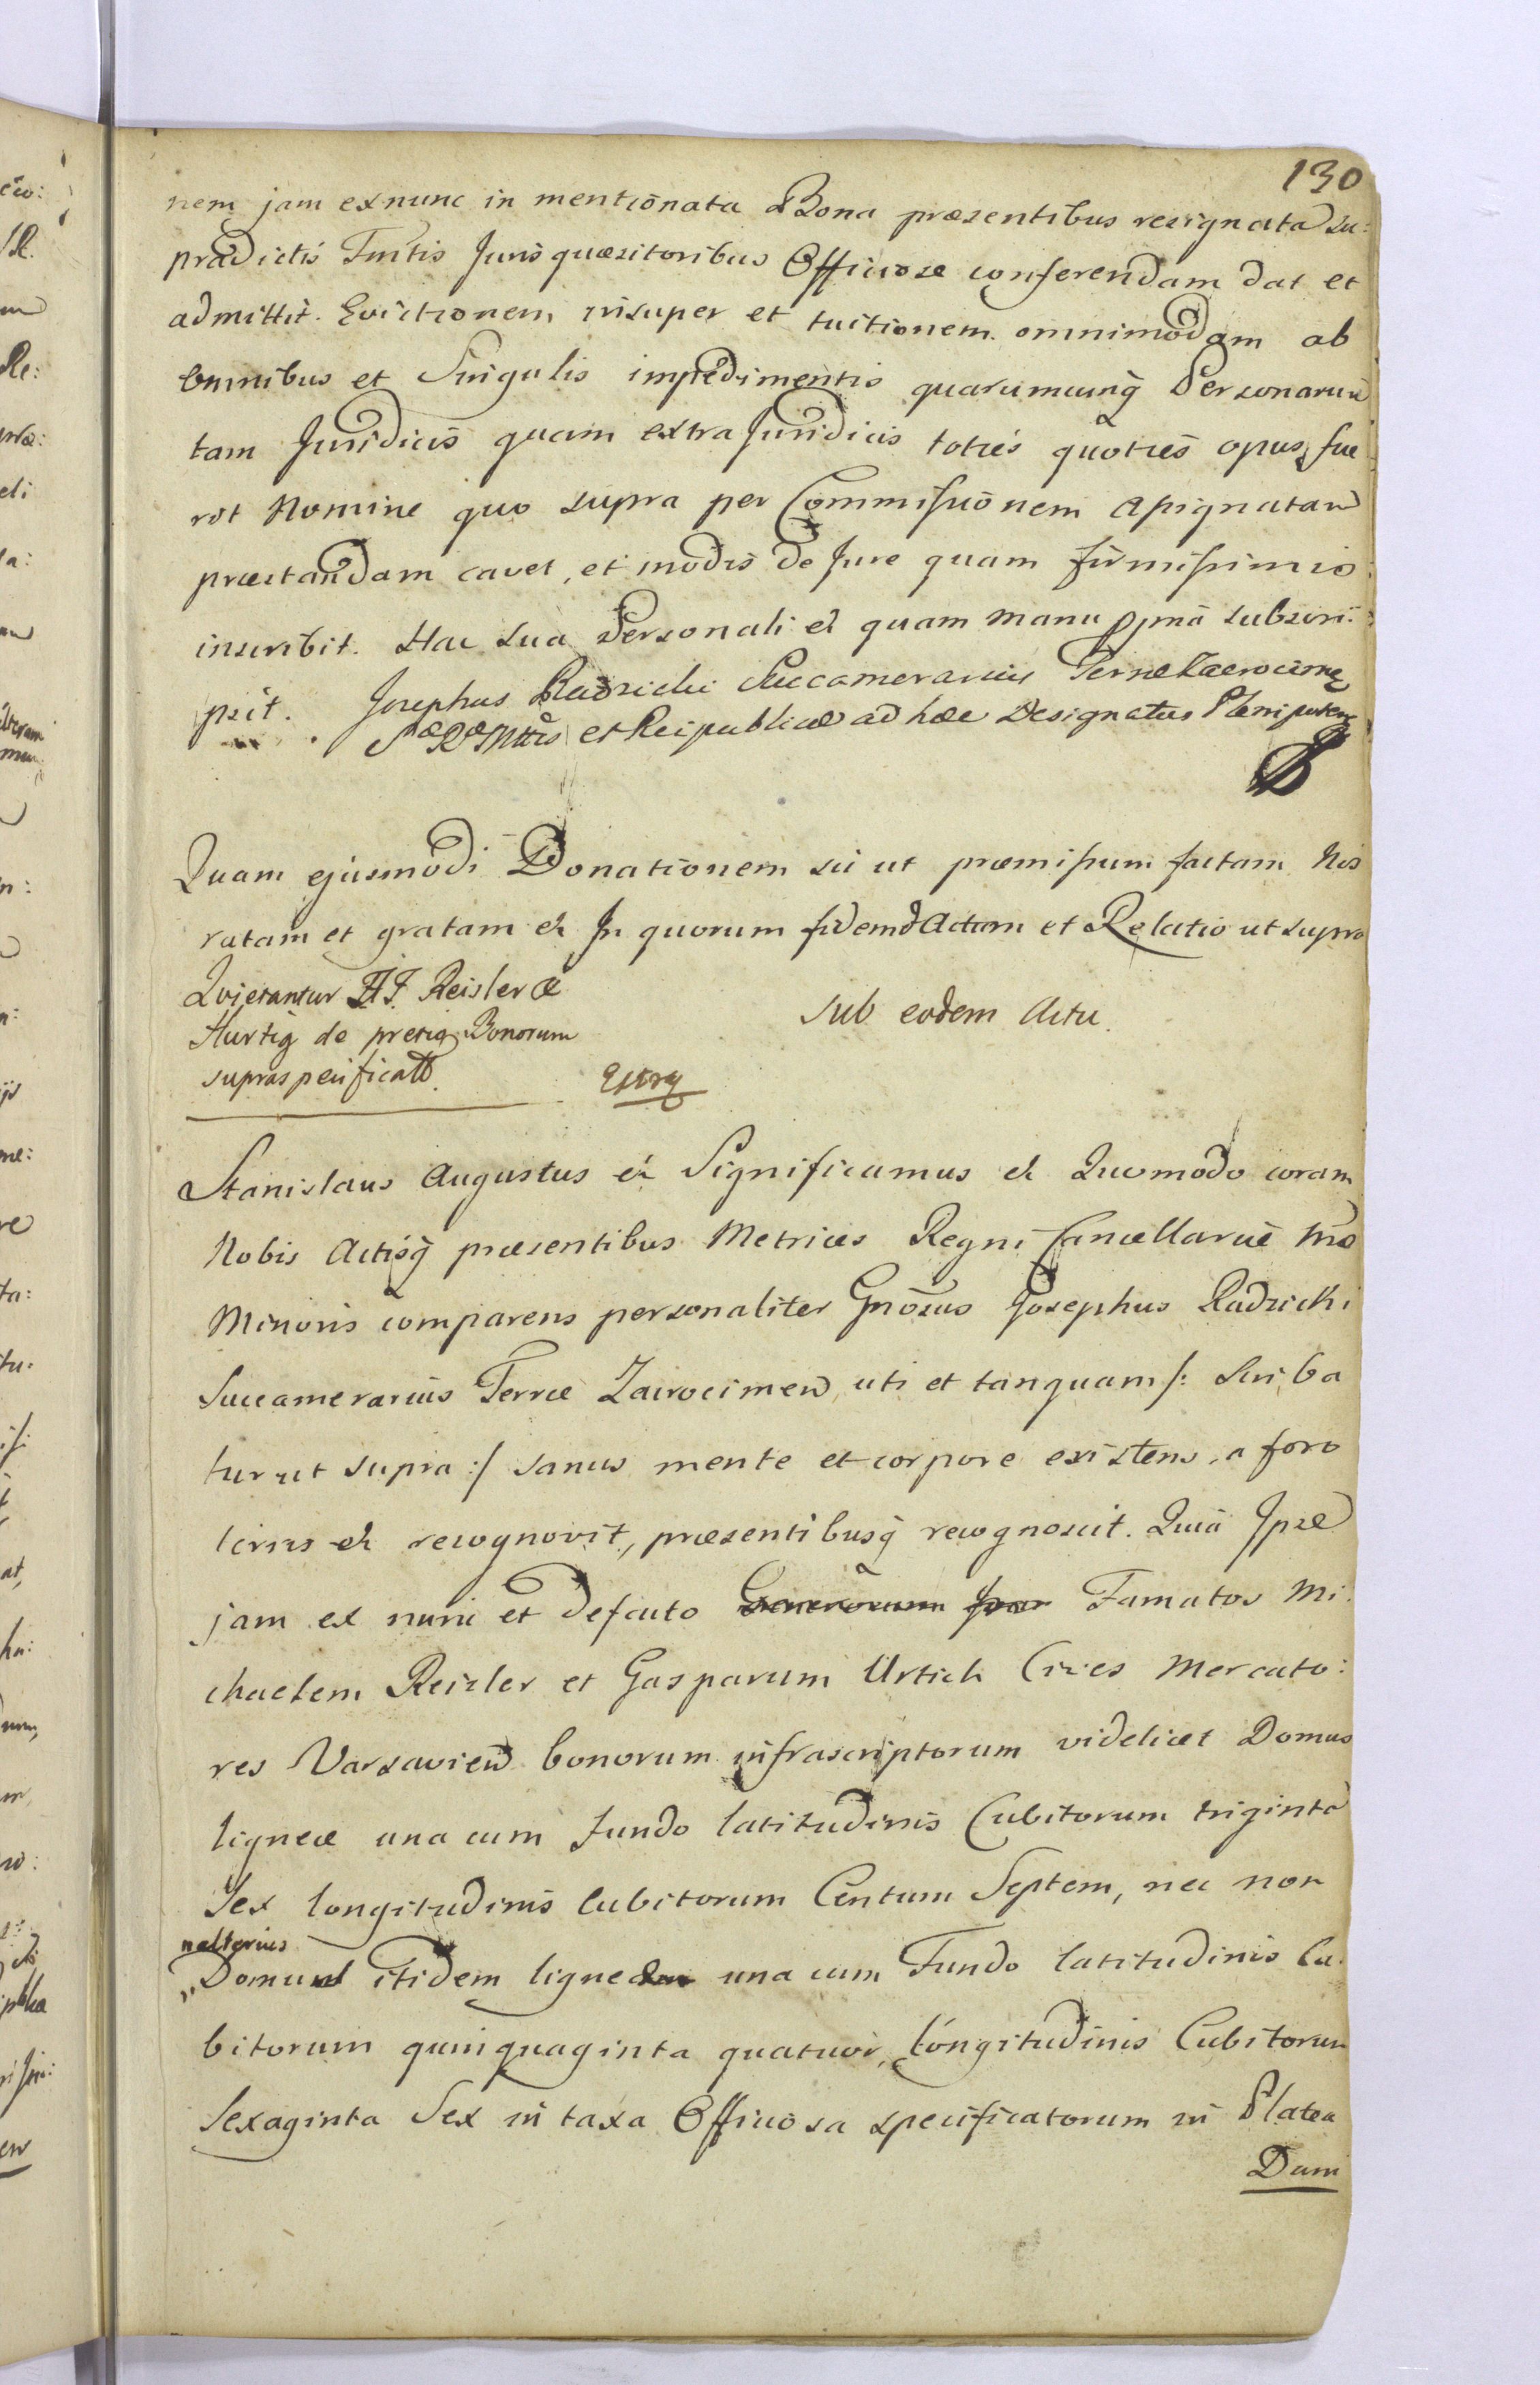 130
nem jam ex nunc in mentionata Bona præsentibus resignata su:
pradictis Fmtis Juris quæsitoribus Officiose conferendam dat et
admittit. Evictionem insuper et tuitionem omnimodam ab
omnibus et Singulis impedimentis quarumcunq̃ Personarum
tam Juridicis quam extra Juridicis toties quoties opus fue
rit Nomine quo supra per Commissionem assignatam
præstandam cavet, et modis de Jure quam firmissimis
inscribit. Hac sua Personali et quam manu ppria subscri:
psit. Josephus Radzicki Succamerarius Terræ Zacrocimen
S. R. Mttis et Reipublicæ ad hæc Designatus Plenipotens
Quam ejusmodi Donationem sic ut præmissum factam Nos
ratam et gratam et In quorum fidem Actum et Relatio ut supra
Qvietantur FF. Reisler &
Hurtig de pretio Bonorum
supraspecificatt.
Sub eodem Actu.
Extrq
Stanislaus Augustus et Significamus et Quomodo coram
Nobis Actisq̃ præsentibus Metrices Regni Cancellariæ
Minoris comparens personaliter Gnosus Josephus Radzicki
Succamerarius Terræ Zacrocimen uti et tanquam /: Scriba
tur ut supra :/ sanus mente et corpore existens, a foro
et recognovit, præsentibusq̃ recognoscit. Quia Ipse
jam ex nunc et defacto Generosum Famatos Mi:
chaelem Reizler et Gasparum Urtich Cives Mercato:
res Varsavien bonorum infrascriptorum videlicet Domus
ligneæ una cum fundo latitudinis Cubitorum triginta
Sex longitudinis Cubitorum Centum Septem, nec non
nalterius
Domus itidem ligneæ una cum Fundo latitudinis Cu:
bitorum quinquaginta quatuor, longitudinis Cubitorum
Sexaginta Sex in taxa Officiosa specificatorum in Platea
Dani